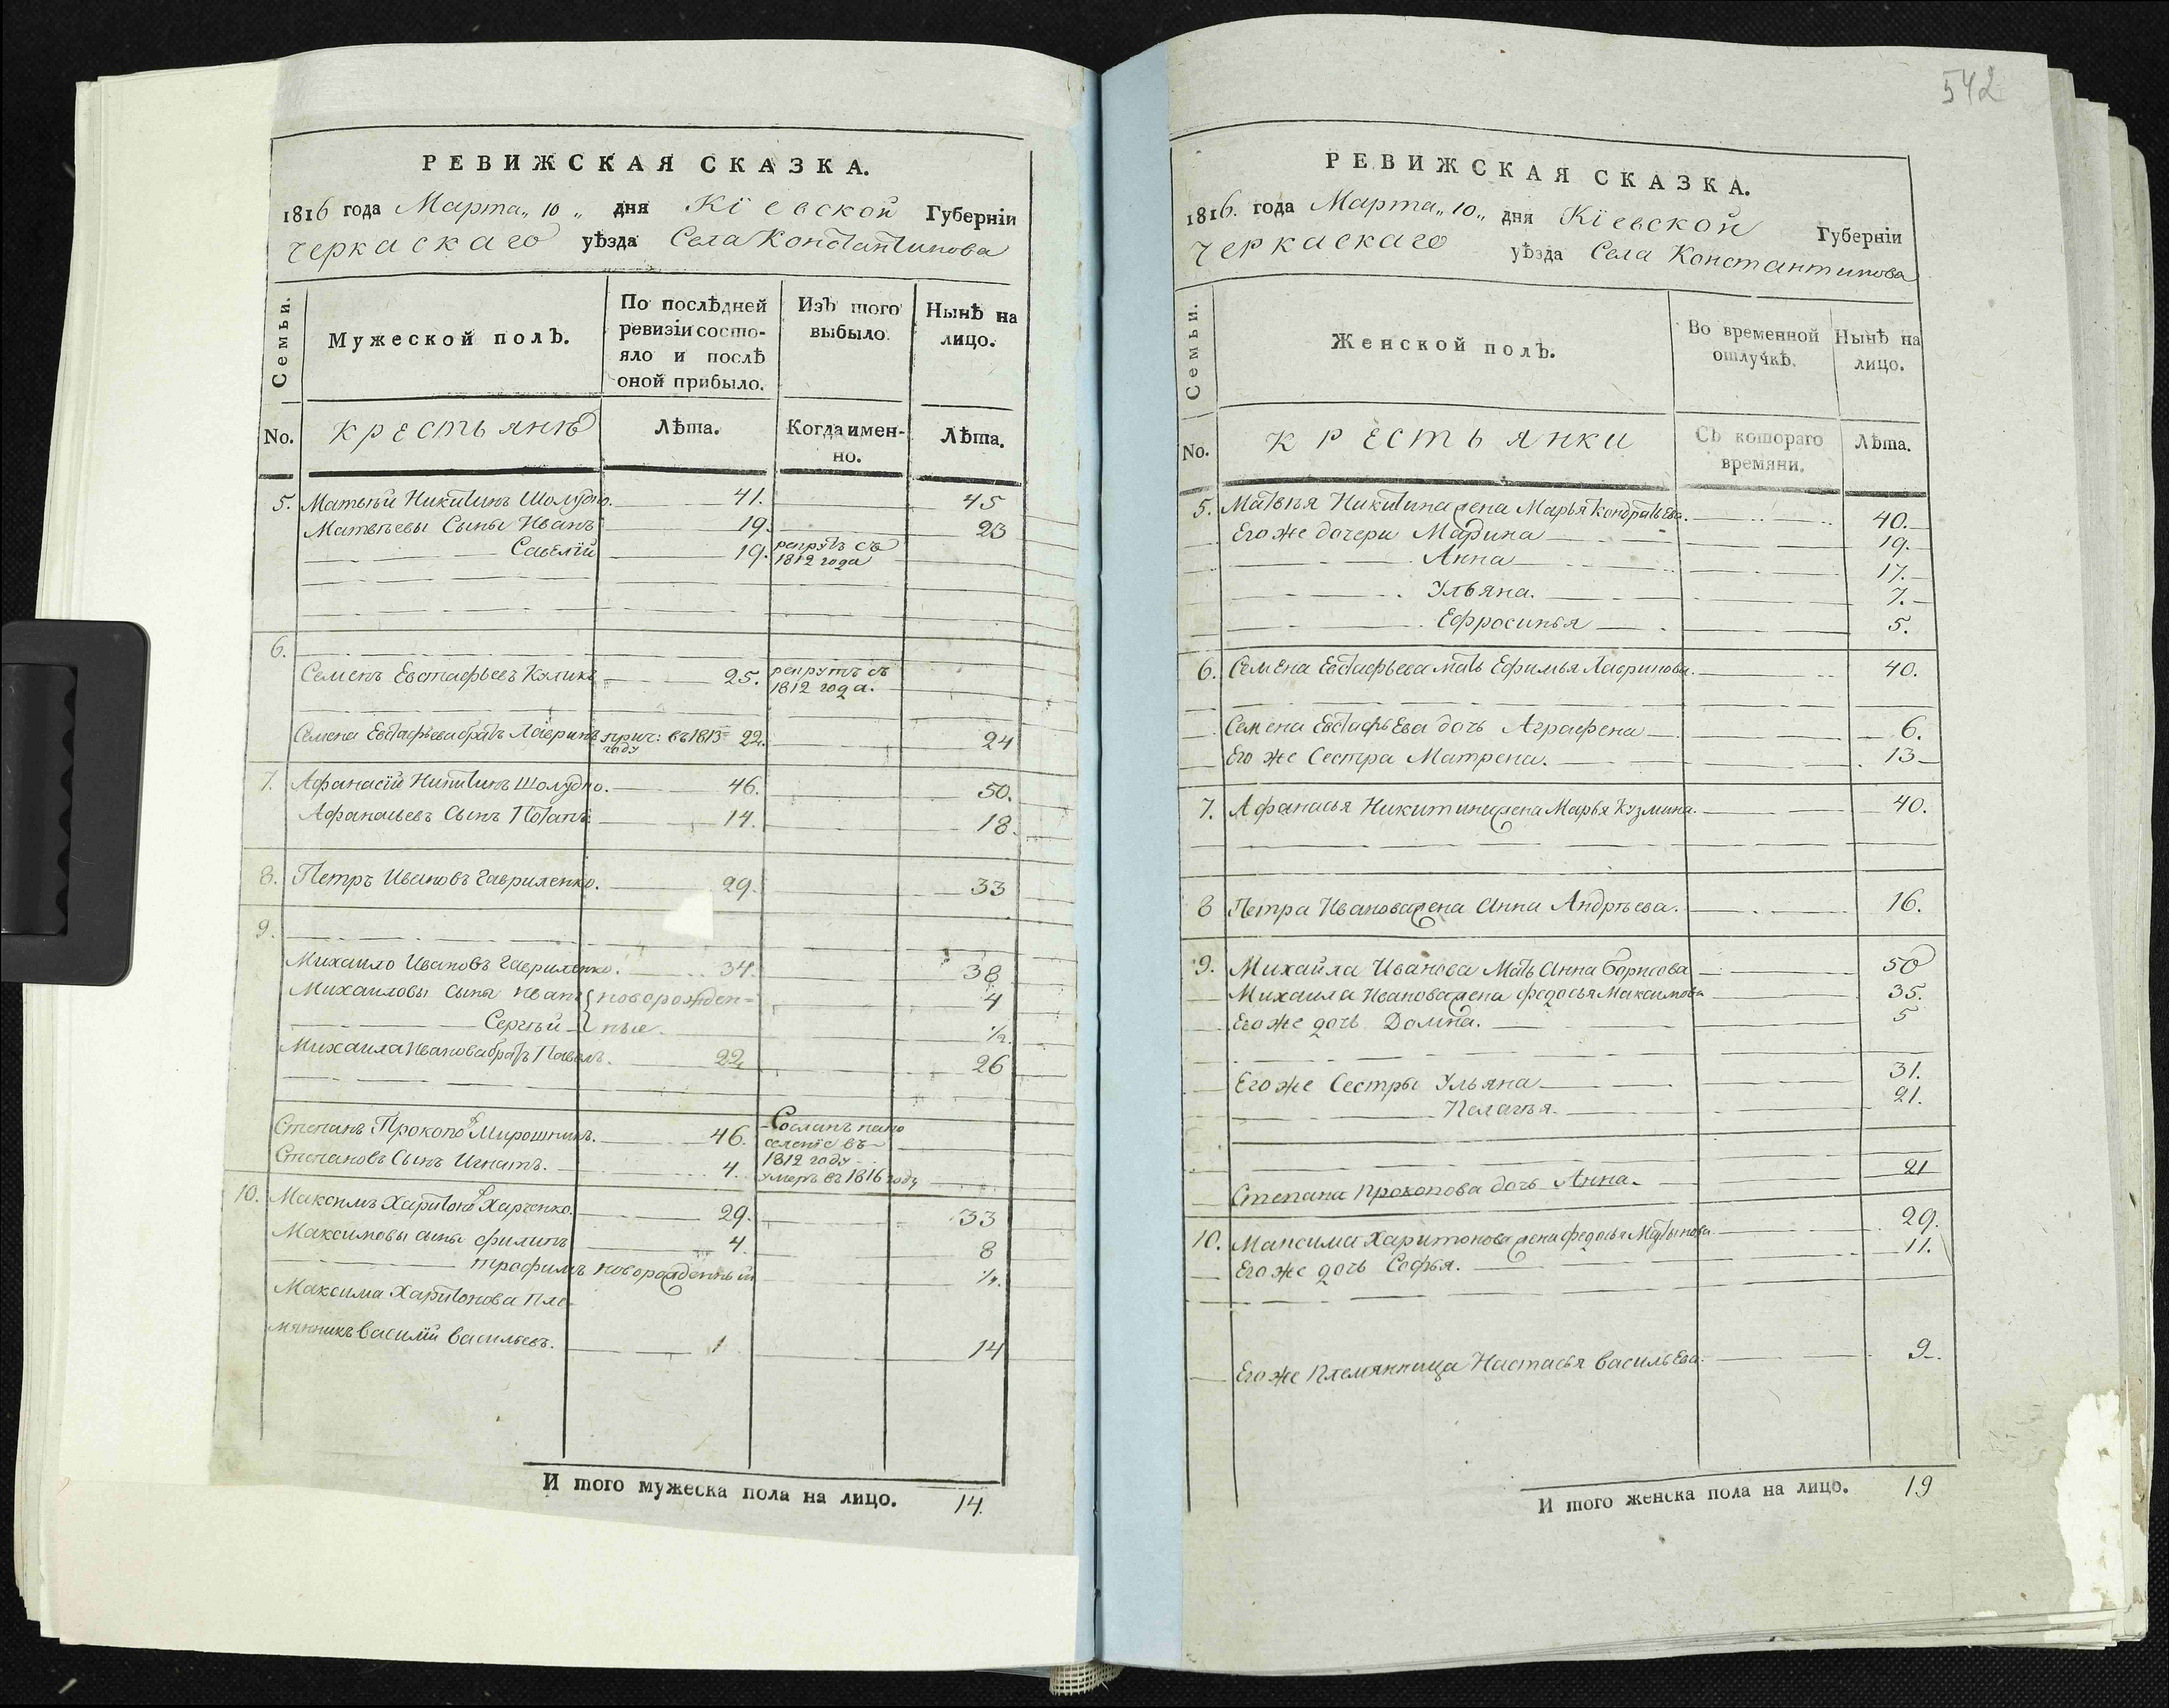 РЕВИЖСКАЯ СКАЗКА.
1816 года Марта „ 10 „ дня Кіевской Губерніи
Черкаскаго уѣзда Села Константинова
Семьи.
Мужеской полъ.
По послѣдней ревизіи состо-
яло и послѣ
оной прибыло.
Изъ того
выбыло.
Нынѣ на
лицо.
No.
Крестьянѣ
Лѣта.
Когда имен-
но.
Лѣта.
5. Матвѣй Никитинъ Шолудко. 41. 45
Матвѣевы Сыны Иванъ 19. 23
Савелій 19. рекрутъ съ
1812 года
6.
Семенъ Евстафьевъ Куликъ 25. рекрутъ съ
1812 года.
Семена Евстафьева братъ Лавринъ прич: въ 1813 22. 24
году
7. Афанасій Никитинъ Шолудко. 46. 50.
Афанасьевъ Сынъ Потапъ 14. 18.
8. Петръ Ивановъ Гавриленко. 29. 33
9.
Михайло Ивановъ Гавриленко. 34. 38
Михаиловы Сыны Иванъ новорожден- 4
Сергѣй ные. 1/2.
Михаила Иванова братъ Павелъ. 22. 26
Степанъ Прокопо Мирошникъ. 46. Сосланъ на по
селеніе въ
1812 году
Степановъ Сынъ Игнатъ. 4. умеръ въ 1816 году
10. Максимъ Харитоно Харченко. 29. 33
Максимовы сыны Филипъ 4. 8
Трофимъ новорожденный
Максима Харитонова Пле-
мянникъ Василій Васильевъ. 1 14
И того мужеска пола на лицо. 14.
542
РЕВИЖСКАЯ СКАЗКА.
1816. года Марта „ 10 „ дня Кіевской Губерніи
Черкаскаго уѣзда Села Константинова
Семьи.
Женской полъ.
Во временной
отлучкѣ.
Нынѣ на
лицо.
No.
Крестьянки
Съ котораго
времяни.
Лѣта.
5. Матвѣя Никитина жена Марья Кондратьева. 40.
Его же дочери Марина 19.
Анна 17.
Ульяна. 7.
Ефросинья 5.
6. Семена Евстафьева мать Ефимья Лавринова. 40.
Семена Евстафьева дочь Аграфена 6.
Его же Сестра Матрена. 13
7. Афанасья Никитина жена Марья Кузмина. 40.
8 Петра Иванова жена Анна Андрѣева. 16.
9. Михайла Иванова Мать Анна Борисова 50
Михаила Иванова жена Федосья Максимова 35.
Его же дочь Домна. 5
Его же Сестры Ульяна 31.
Пелагѣя. 21.
Степана Прокопова дочь Анна. 21
10. Максима Харитонова жена Федосья 29.
Его же дочь Софья. 11.
Его же Племянница Настасья Васильева. 9.
И того женска пола на лицо. 19